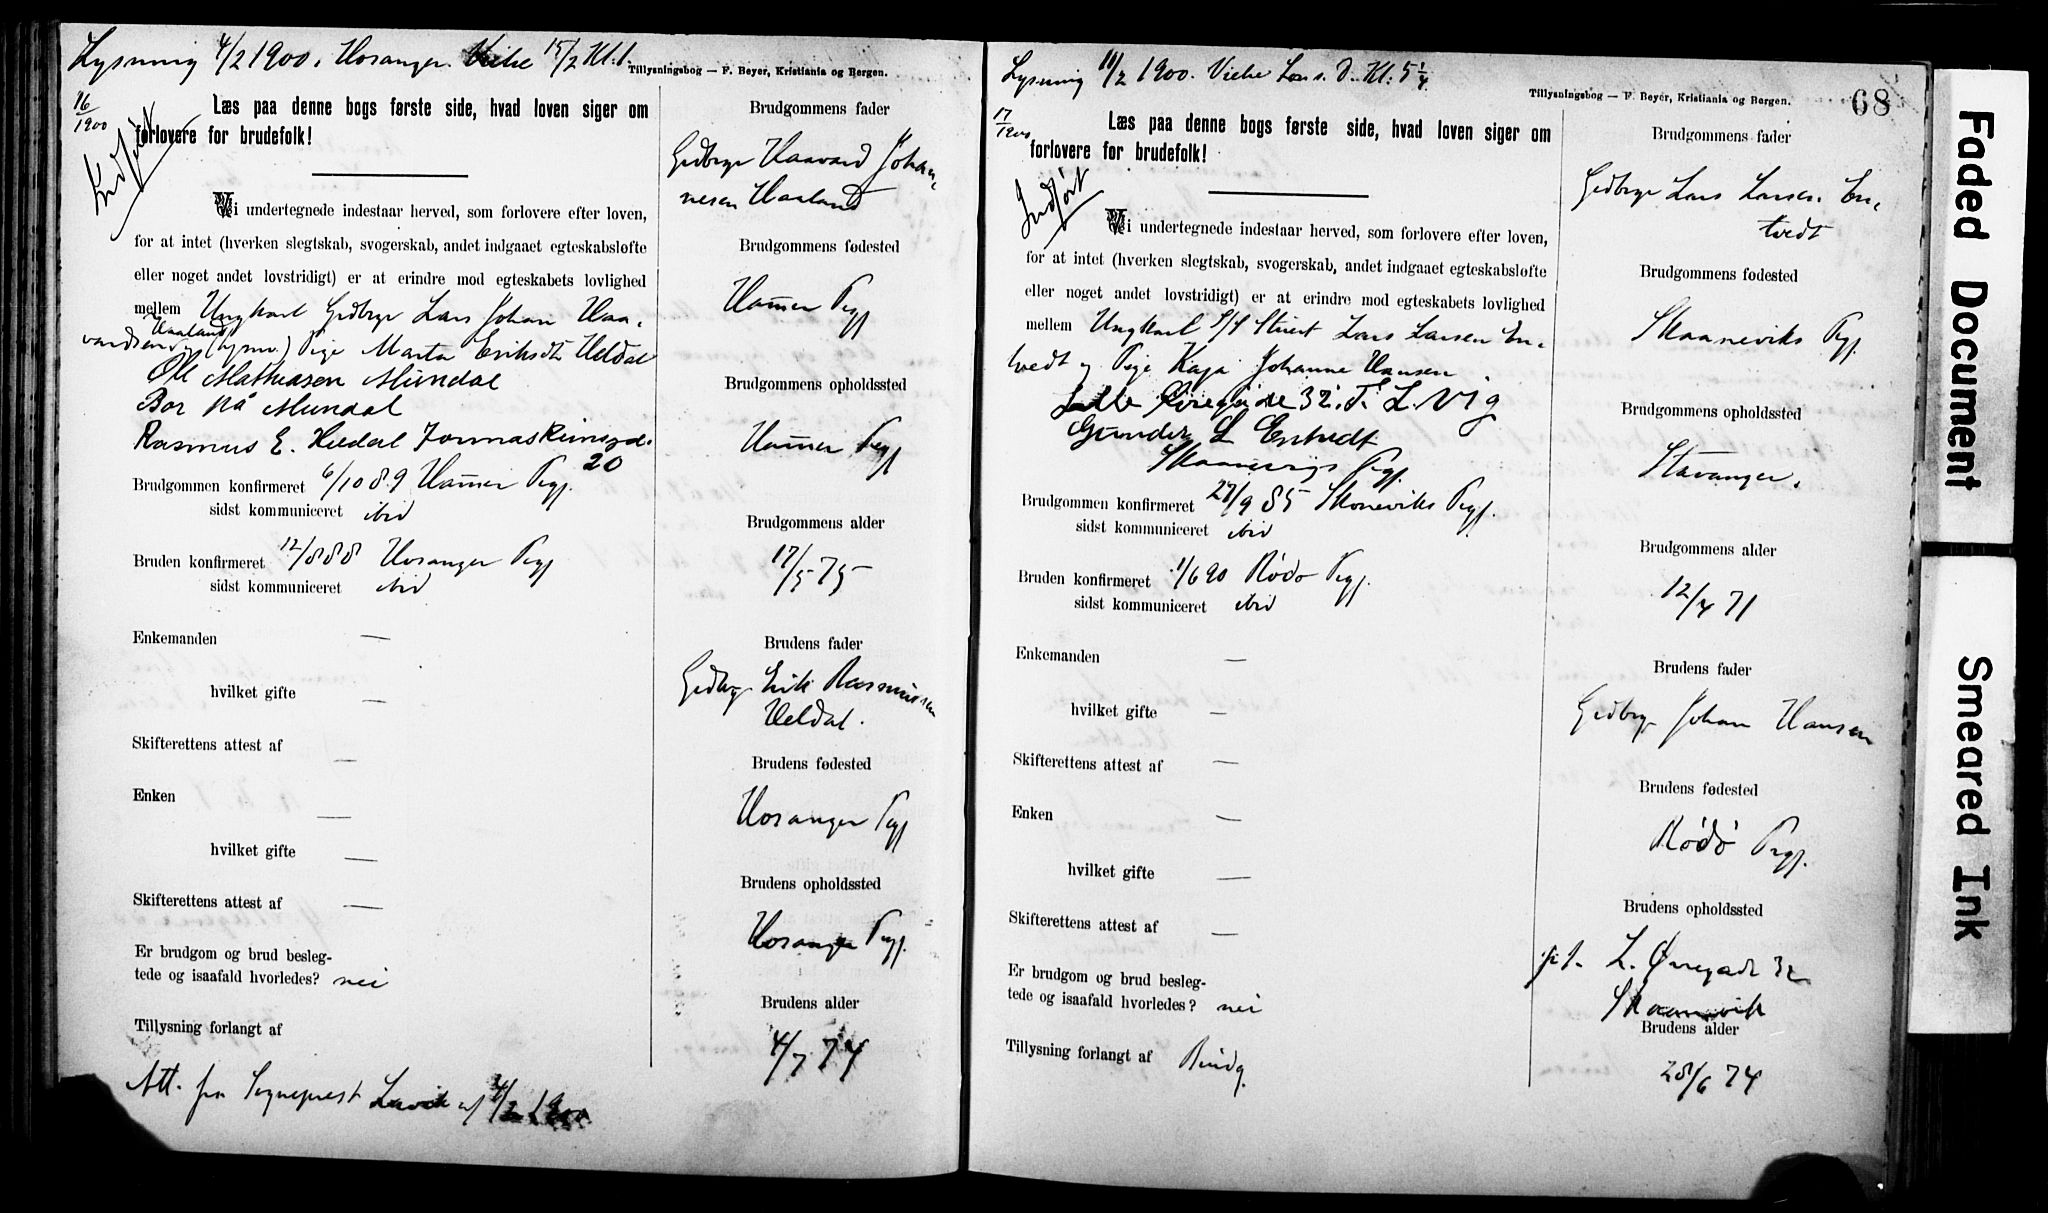 Lysning 4/2 1900. Hosanger. Vielse 15/2 Kl. 1.
Tillysningsbog — F. Beyer, Kristiania og Bergen.
16/1900
Indført
Læs paa denne bogs første side, hvad loven siger om
forlovere for brudefolk!
Vi undertegnede indestaar herved, som forlovere efter loven,
for at intet (hverken slegtskab, svogerskab, andet indgaaet egteskabsløfte
eller noget andet lovstridigt) er at erindre mod egteskabets lovlighed
mellem Ungkarl Gedbrgr Lars Johan Haa-
Haaland
vardsen og Pige Marta Eriksdtr Heldal
Ole Mathiasen Mundal
Bor på Mundal
Rasmus E. Heldal
20
Brudgommen konfirmeret 6/10 89 Hammer Prgj.
sidst kommuniceret ibid
Bruden konfirmeret 12/8 88 Hosanger Prgj
sidst kommuniceret ibid
Enkemanden —
hvilket gifte —
Skifterettens attest af —
Enken —
hvilket gifte —
Skifterettens attest af —
Er brudgom og brud beslegtede
tede og isaafald hvorledes? nei
Tillysning forlangt af
Att. fra Sogneprest Lavik af 4/2 1900
Brudgommens fader
Gedbrgr Haavard Johan-
nesen Haaland
Brudgommens fødested
Hammer Prgj
Brudgommens opholdssted
Hammer Prgj
Brudgommens alder
17/5 75
Brudens fader
Gedbrgr Erik Rasmussen
Heldal.
Brudens fødested
Hosanger Prgj
Brudens opholdssted
Hosanger Prgj.
Brudens alder
4/7 74
Lysning 11/2 1900. Vielse Lars. D. Kl. 5 1/4
Tillysningsbog — F. Beyer, Kristiania og Bergen.
68
17/1900
Indført
Læs paa denne bogs første side, hvad loven siger om
forlovere for brudefolk!
Vi undertegnede indestaar herved, som forlovere efter loven,
for at intet (hverken slegtskab, svogerskab, andet indgaaet egteskabsløfte
eller noget andet lovstridigt) er at erindre mod egteskabets lovlighed
mellem Ungkarl S/S Stuert Lars Larsen En-
tvedt og Pige Kaja Johanne Hansen
Lille Øvregade 32. T. L. Vig
Gunder L Entvedt
Skaanevigs Prgj.
Brudgommen konfirmeret 27/9 85 Skoneviks Prgj.
sidst kommuniceret ibid
Bruden konfirmeret 1/6 90 Rødø Prgj.
sidst kommuniceret ibid
Enkemanden —
hvilket gifte —
Skifterettens attest af —
Enken —
hvilket gifte —
Skifterettens attest af —
Er brudgom og brud besleg-
tede og isaafald hvorledes? nei
Tillysning forlangt af Brudg.
Brudgommens fader
Gedbrgr Lars Larsen En-
tvedt
Brudgommens fødested
Skaaneviks Prgj.
Brudgommens opholdssted
Stavanger.
Brudgommens alder
12/4 71
Brudens fader
Gedbrgr Johan Hansen
Brudens fødested
Rødø Prgj.
Brudens opholdssted
p.t. L. Øvregade 32
Skaanevik
Brudens alder
28/6 74
Faded Document
Smeared Ink